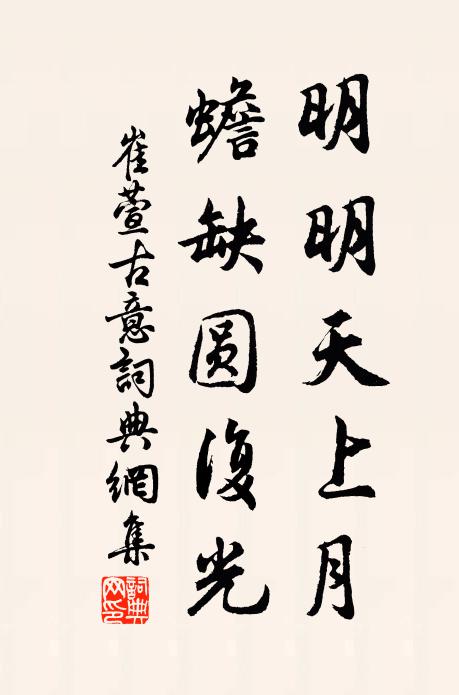 明明天上月
蟾缺圆復光
崔萱古意詞典網集
詞典网印